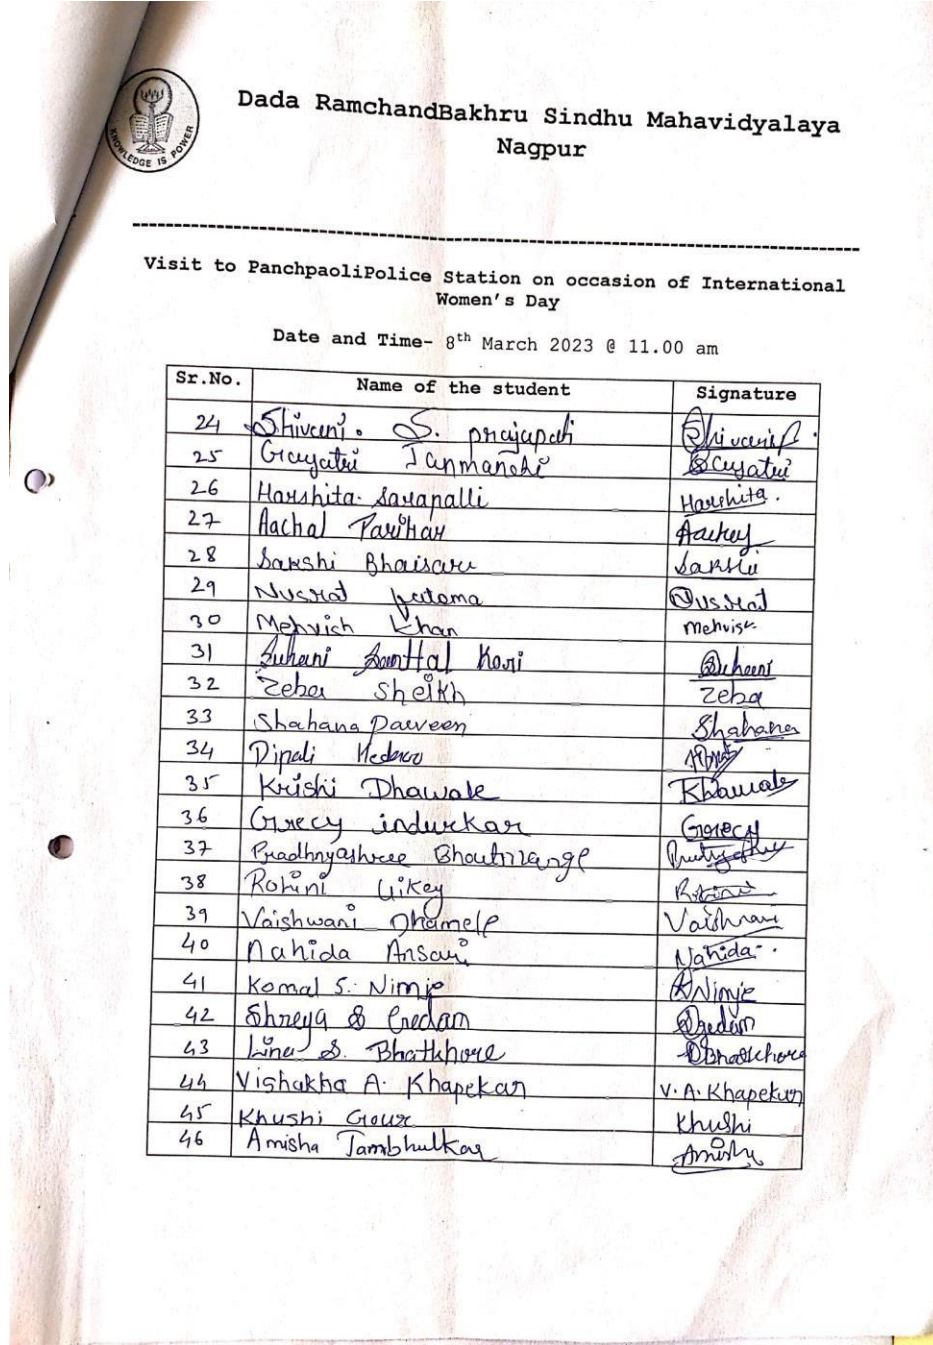 KNOWLEDGE IS POWER
Dada RamchandBakhru Sindhu Mahavidyalaya
Nagpur
Visit to PanchpaoliPolice Station on occasion of International
Women's Day
Date and Time- 8th March 2023 @ 11.00 am
Sr.No. Name of the student Signature
24 Shivani. S. prajapati
25 Gayatri Janmanchi Gayatri
26 Harshita Sarapalli Harshita.
27 Aachal Parihar
28 Sakshi Bhaisare Sakshi
29 Nusrat fatema Nusrat
30 Mehvish Khan
31 Suhani Kori Suhani
32 Zeba Sheikh Zeba
33 Shahana Parveen Shahana
34 Dipali
35 Krishi Dhawale KDhawale
36 Grecy indurkar Grecy
37 Pradhnyashree
38 Rohini Uikey Rohini
39 Vaishwani Dhamele Vaishnavi
40 Nahida Ansari Nahida
41 Komal S. Nimje KNimje
42 Shreya S Gedam SGedam
43 Lina S. Bhatkhore
44 Vishakha A. Khapekar V.A. Khapekar
45 Khushi Gour Khushi
46 Amisha Tambhulkar Amisha